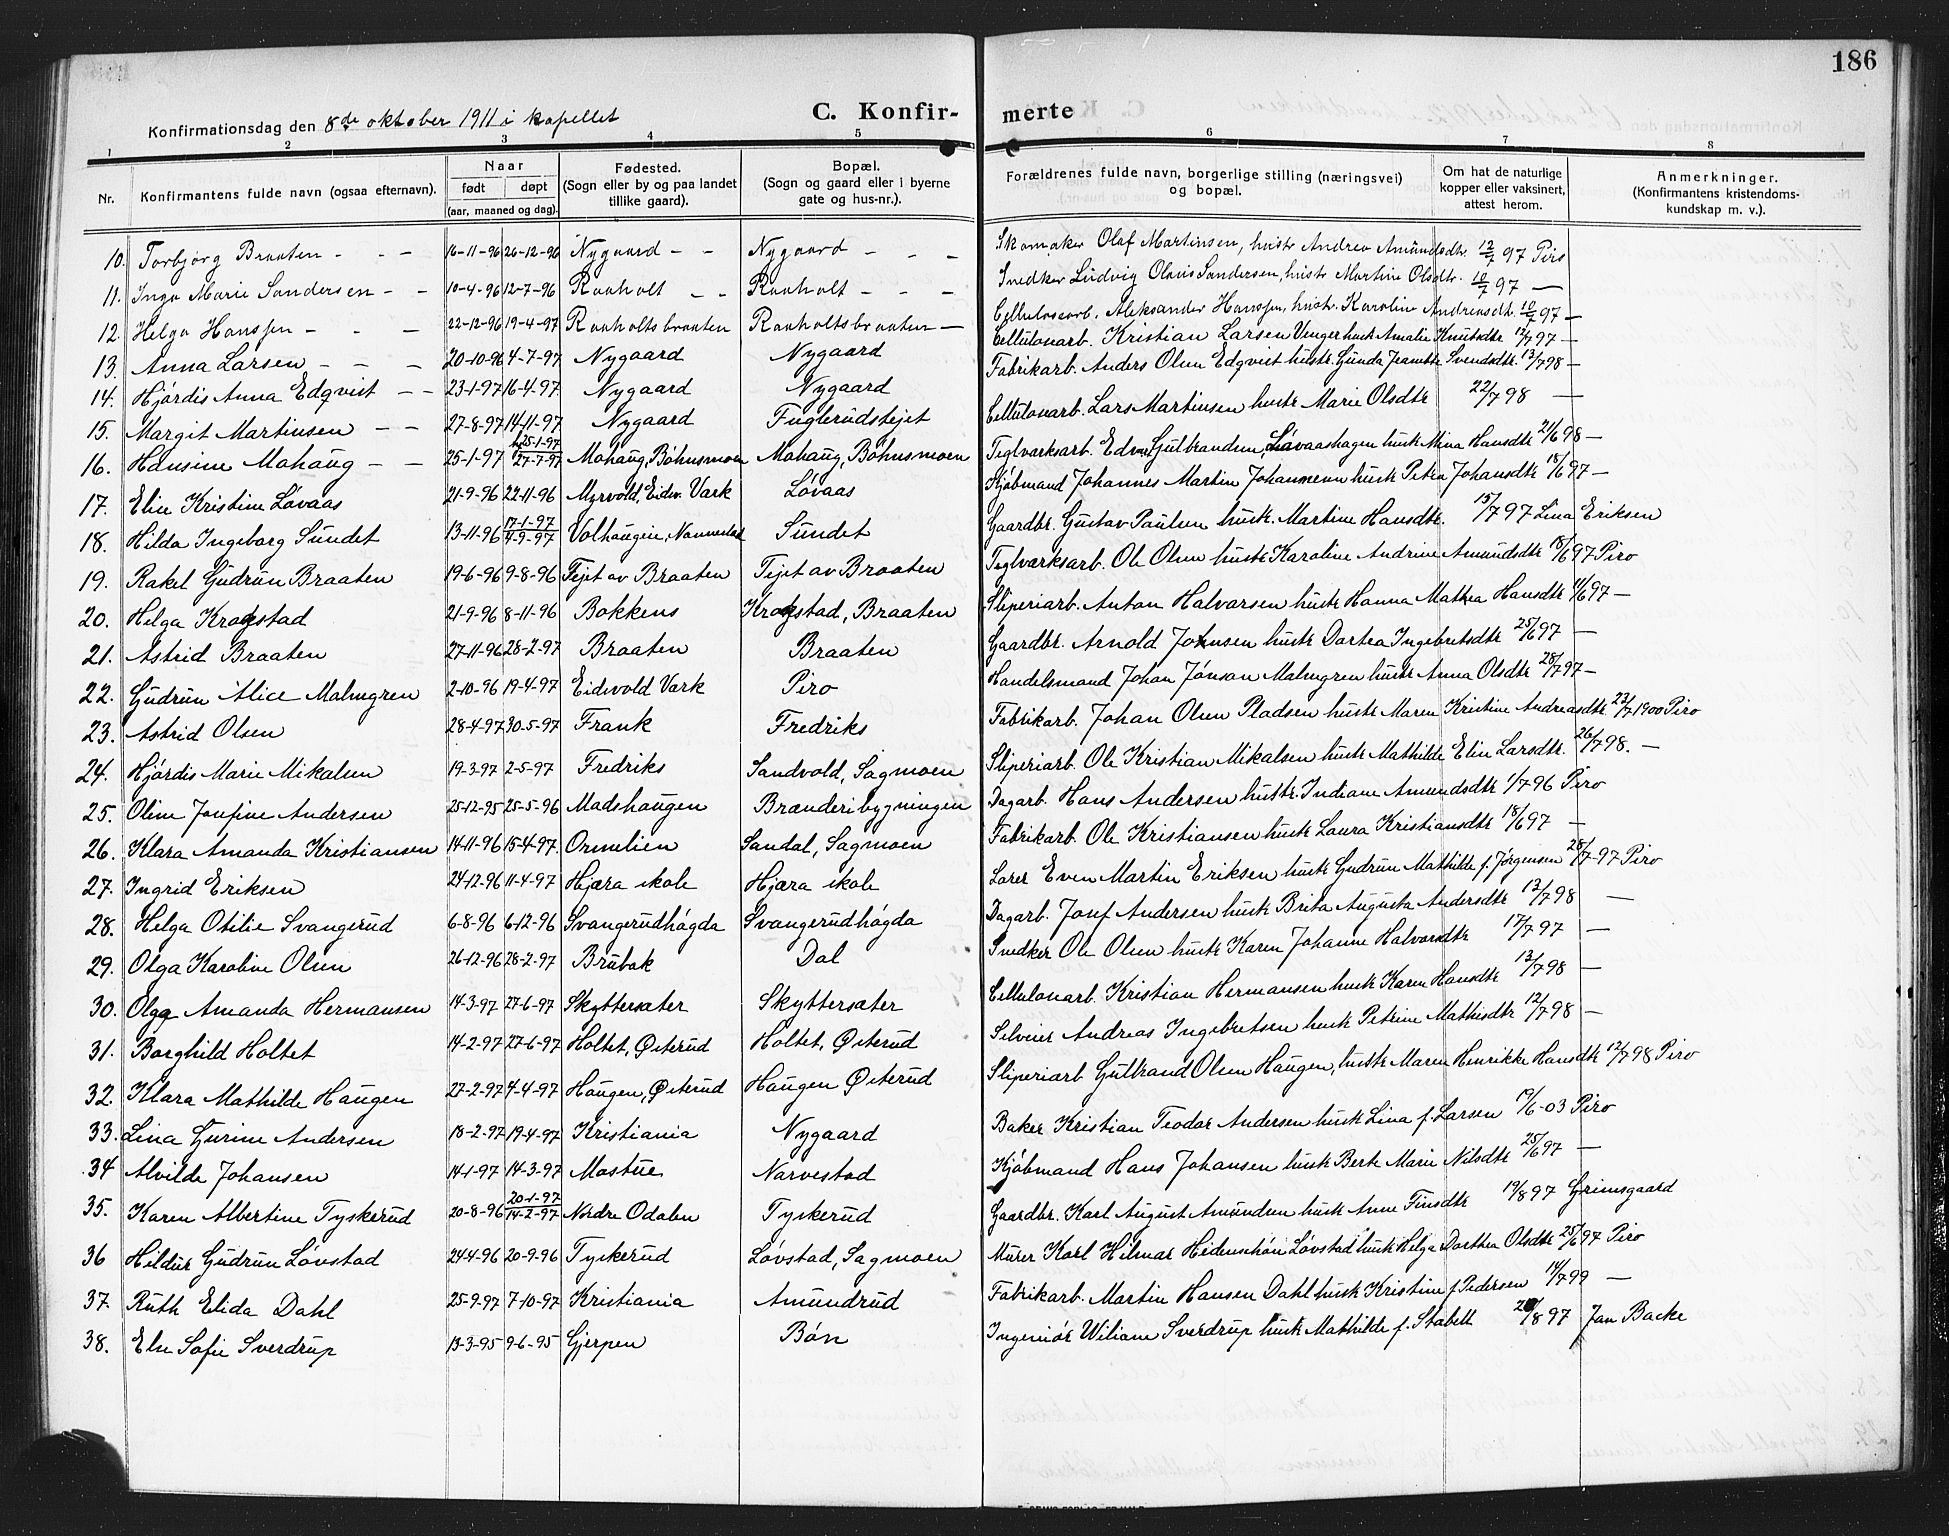 186
Konfirmationsdag den 8de oktober 1911 i kapellet
C. Konfir-merte
1 2 3 4 5 6 7 8
Nr. Konfirmantens fulde navn (ogsaa efternavn). Naar født døpt (aar, maaned og dag). Fødested. (Sogn eller by og paa landet tillike gaard). Bopæl. (Sogn og gaard eller i byerne gate og hus-nr.). Forældrenes fulde navn, borgerlige stilling (næringsvei) og bopæl. Om hat de naturlige kopper eller vaksinert, attest herom. Anmerkninger. (Konfirmantens kristendoms-kundskap m. v.).
10. Torbjørg Braaten - - - 16-11-96 26-12-96 Nygaard - - Nygaard - - - Skomaker Olaf Martinsen, hustr Andrea Amundsdtr. 12/7 97 Piro
11. Inga Marie Sandersen - - 10-4-96 12-7-96 Raaholt - - Raaholt - - - Snedker Ludvig Olavis Sandersen, hustr Martine Olsdtr. 10/7 97 —
12. Helga Hanssen - - - 22-12-96 19-4-97 Raaholtsbraaten Raaholtsbraaten — Cellulosearb. Aleksander Hanssen, hustr. Karolin Andreasdt. 10/7 97 —
13. Anna Larsen - - - 20-10-96 4-7-97 Nygaard Nygaard Cellulosarb. Kristian Larsen Venger hustr Amalie Knutsdtr 12/7 97 —
14. Hjørdis Anna Edqvist - - 23-1-97 16-4-97 Nygaard Nygaard Fabrikarb. Anders Olsen Edqvist hustr. Gunda Jramtte Svendsdtr. 13/7 98 —
15. Margit Martinsen - - 27-8-97 14-11-97 Nygaard Fuglerudstejet Cellulosarb. Lars Martinsen hustr Marie Olsdtr 22/7 98 —
16. Hansine Mohaug - - 25-1-97 25-1-97 27-7-97 Mohaug, Bøhnsmoen Mohaug, Bøhnsmoen Teglverksarb. Edv. Gulbrandsen Løvaashagen hustr Mina Hansdtr 21/6 98 —
17. Elin Kristine Løvaas 21-9-96 22-11-96 Myrvold, Eidsv. Værk Løvaas Kjøbmand Johannes Martin Johannesen hustr Petra Johansdtr 18/6 97 —
18. Hilda Ingeborg Sundet 13-11-96 17-1-97 4-9-97 Volhaugen, Nannestad Sundet Gaardbr. Gustav Paulsen hustr. Martine Hansdtr. 15/7 97 Lina Eriksen
19. Rakel Gudrun Braaten 19-6-96 9-8-96 Tejet av Braaten Tejet av Braaten Teglværksarb. Ole Olsen hustr Karoline Andrine Amundsdtr 18/6 97 Piro
20. Helga Krogstad 21-9-96 8-11-96 Bokkens Krogstad, Braaten Sliperiarb. Anton Halvorsen hustr Hanna Mathea Hansdtr 11/6 97 —
21. Astrid Braaten 27-11-96 28-2-97 Braaten Braaten Gaardbr. Arnold Johnsen hustr Dortea Ingebretsdtr 25/6 97 —
22. Gudrun Alice Malmgren 2-10-96 19-4-97 Eidsvold Værk Piro Handelsmand Johan Jónson Malmgren hustr Anna Olsdtr 28/7 97 —
23. Astrid Olsen 28-4-97 30-5-97 Frank Fredriks Fabrikarb. Johan Olsen Pladsen hustr Maren Kristine Andreasdtr 23/7 1900 Piro
24. Hjørdis Marie Mikalsen 19-3-97 2-5-97 Fredriks Sandvold, Sagmoen Sliperiarb. Ole Kristian Mikalsen hustr Mathilde Elin Larsdtr. 26/7 98. —
25. Oline Josefine Andersen 25-12-95 25-5-96 Madshaugen Brænderibygningen Dagarb. Hans Andersen hustr. Indiane Amundsdtr 1/7 96 Piro
26. Klara Amanda Kristiansen 14-11-96 15-4-97. Ormlien Sandal, Sagmoen Fabrikarb. Ole Kristiansen hustr Laura Kristiansdtr 18/6 97 —
27. Ingrid Eriksen 24-12-96 11-4-97 Hjæra skole Hjæra skole Lærer Even Martin Eriksen hustr Gudrun Mathilde f. Jørgensen 28/7-97 Piro
28. Helga Otilie Svangerud 6-8-96 6-12-96 Svangerudhøgda Svangerudhøgda Dagarb. Josef Andersen hustr Brita Augusta Andersdtr 12/7 98 —
29. Olga Karoline Olsen 26-12-96 28-2-97 Brubak Dal Snedker Ole Olsen hustr Karen Johanne Halvorsdtr 17/7 97 —
30. Olga Amanda Hermansen 14-3-97 27-6-97 Skyttersæter Skyttersæter Cellulosarb. Kristian Hermansen hustr Karen Hansdtr 13/7 98 —
31. Borghild Holtet 14-2-97 27-6-97 Holtet, Østerud Holtet, Østerud Selveier Andreas Ingebretsen hustr Petrine Mathisdtr 12/7 98 —
32. Klara Mathilde Haugen 22-2-97 4-4-97 Haugen, Østerud Haugen Østerud Sliperiarb Gulbrand Olsen Haugen, hustr Maren Henrikke Hansdtr 12/7 98 Piro
33. Lina Gurine Andersen 18-2-97 19-4-97 Kristiania Nygaard Baker Kristian Teodor Andersen hustr Lina f. Larsen 19/6-03 Piro
34 Alvilde Johansen 14-1-97 14-3-97 Mostue Narvestad Kjøbmand Hans Johansen hustr Berte Marie Nilsdtr 25/6 97 —
35. Karen Albertine Tyskerud 20-8-96 20-1-97 14-2-97 Nordre Odalen Tyskerud Gaardbr. Karl August Amundsen hustr Anne Finsdtr 19/8 97 Grimsgaard
36 Hildur Gudrun Løvstad 24-4-96 20-9-96 Tyskerud Løvstad, Sagmoen Murer Karl Hilmar Heidenschøn Løvstad hustr Helga Dorthea Olsdtr 25/6 97 Piro
37. Ruth Elida Dahl 25-9-97 7-10-97 Kristiania Amundrud Fabrikarb. Martin Hansen Dahl hustr Kristine f. Pedersen 14/7 99 —
38. Else Sofie Sverdrup 13-3-95 9-6-95 Gjerpen Bøn Ingeniør Wiliam Sverdrup hustr Mathilde f. Stabell /8 97 Jan Backe